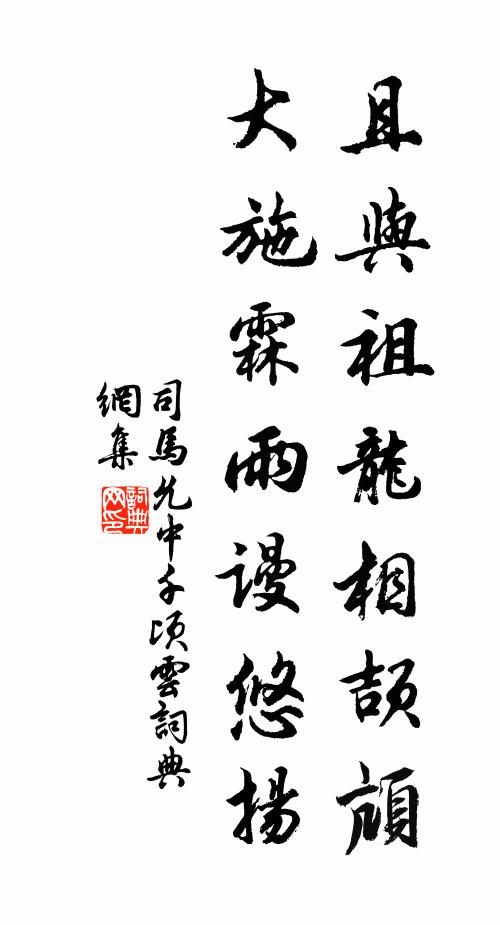 且與祖龍相頡頏
大施霖雨謾悠揚
司馬允中千頃雲詞典
網集
詞典
网印